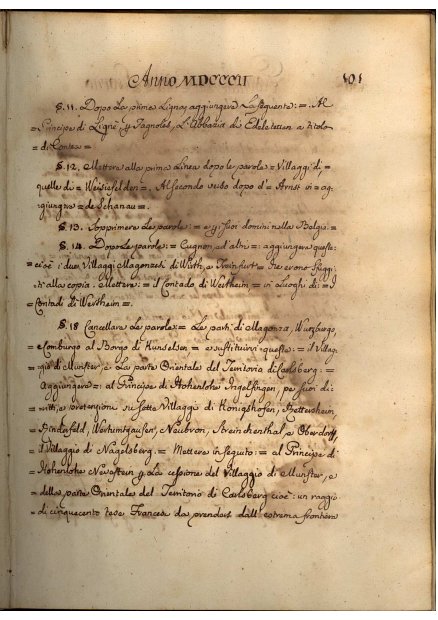 Anno MDCCCII 101
§. 11. Dopo la prima Ligna, aggiungere la sequente: = Al
Principe di Ligne per Fagnoles, l'Abbazia di Edelstetten a titolo
= di Contea =
§. 12. Mettere alla prima Linea dopo le parole = Villaggi di,
quelle di = Weissefelden =. Al secondo verso dopo d = Arnst in = ag-
giungere = de Schanau =.
§. 13. Sopprimere le parole: = e gl'suoi domini nella Belgio =
§. 14. Dopo le parole: = Cugnon, ed altri =: aggiungere queste:
= cioè: i due Villaggi Magonesi di Wirth, e Trenfurt =
alla copia. Mettere: = il Contado di Wertheim, = in luoghi di: = I
Contadi di Wertheim =.
§. 18 Cancellare le parole: = Le parti di Magonza, Wurzburgo,
= e Comburgo al Borgo di Kunselsen, = e sustituirvi queste: = il Villag-
gio di Munster, e la parte Orientale del Territorio di Carlsberg: =
Aggiungere =: al Principe di Hohenlohe Ingelfingen, per suoi di-
= ritti, e pretenzioni su sette Villaggi di Konigshofen, Rettersheim,
= Reiderfeld, Wermuthausen, Neubron, Streichenthal, e Oberdorff,
il Villaggio di Nagelsberg. = Mettere in seguito: = al Principe di
Hohenlohe Neuestein per la cessione del Villaggio di Munster, e
= della parte Orientale del Territorio di Carlsberg cioè: un raggio
= di cinquecento tese Francesi da prendersi dall'estrema frontiera